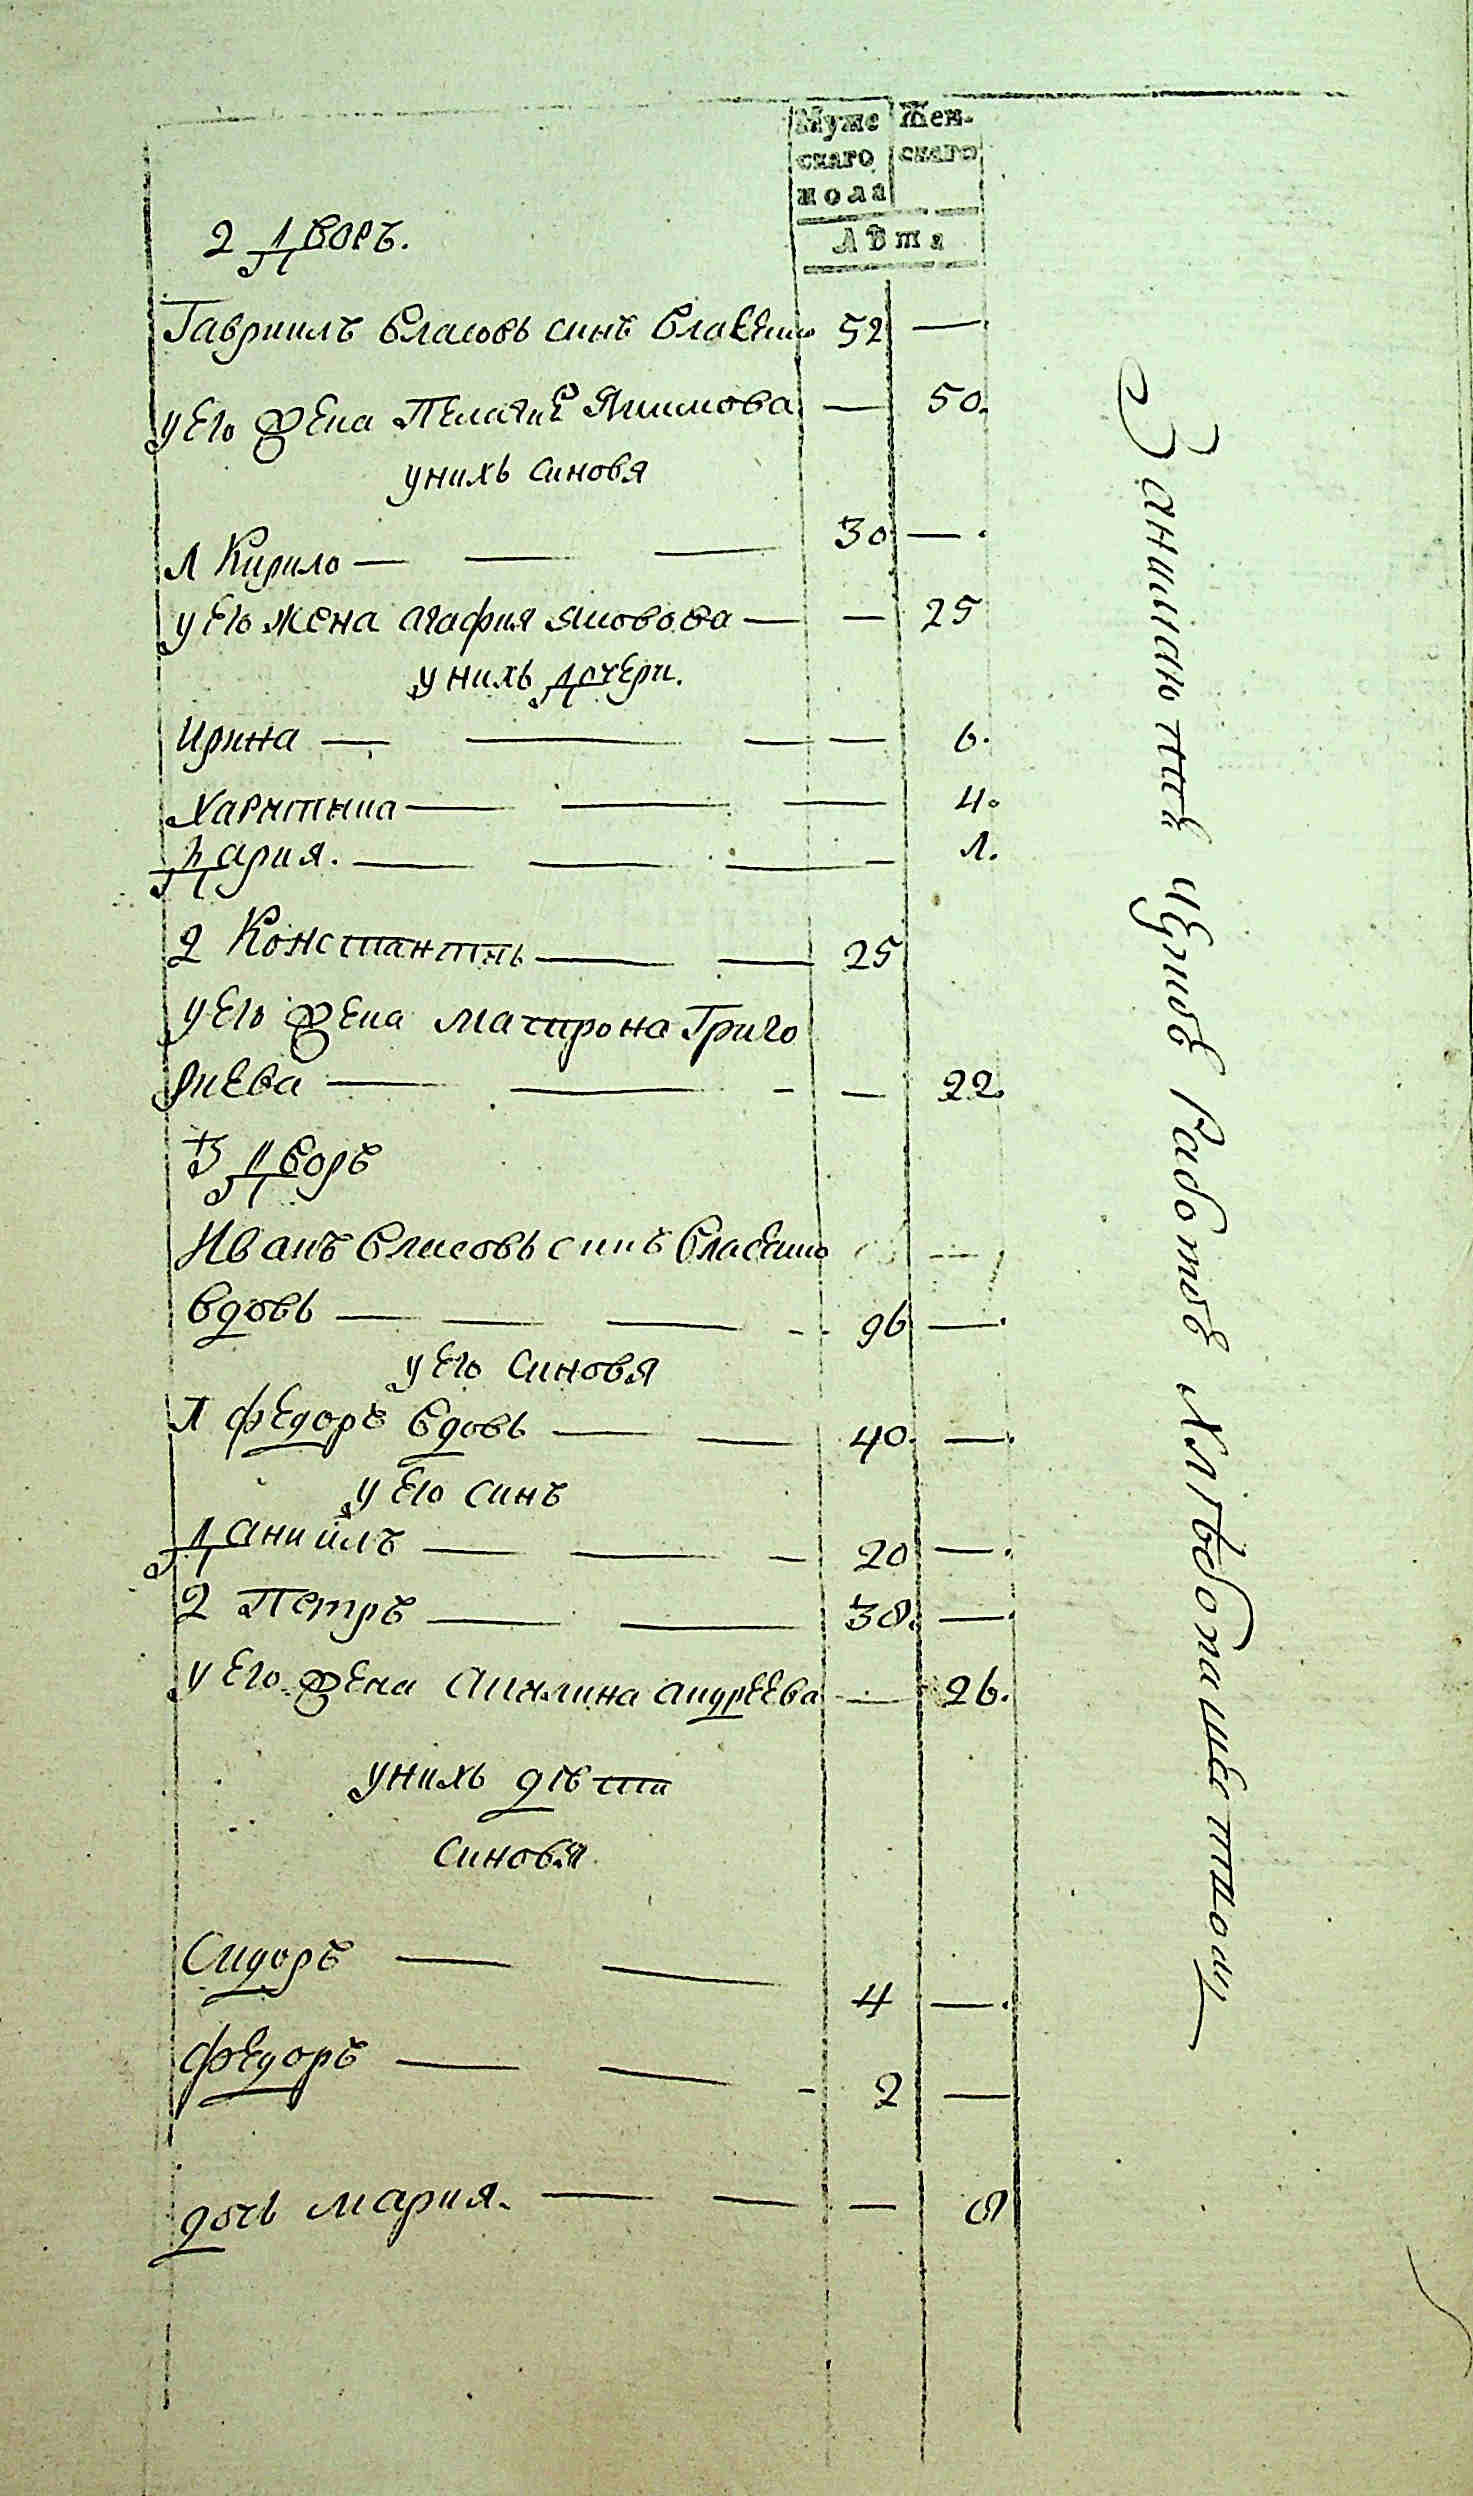 Муже Жен-
скаго скаго
пола
Лѣта
2 Дворъ.
Гавриилъ Власовъ синъ Власенко 52 —
у его жена Пелагиѣ Якимова — 50.
у нихъ синовя
1 Кирило — — — 30 —
у его жена агафия яковова — — 25
у нихъ дочери.
ирина — — — — 6.
Харитина — — — 4.
Дария. — — — — 1.
2 Константинъ — — 25
у его жена матрона Григо
риева — — - — 22.
3 Дворъ
Иванъ Власовъ синъ Власенко —
вдовъ — — — 96 —
у его синовя
1 федоръ вдовъ — — 40. —
у его синъ
Даниилъ — — - 20 —
2 Петръ — — 38. —
у его жена акилина андреева — 26.
у нихъ дѣти
синовя
Сидоръ — — 4 —
федоръ — — - 2 —
дочъ мария. — — — 8
Занимаютце чужое работое хлебопашетвом